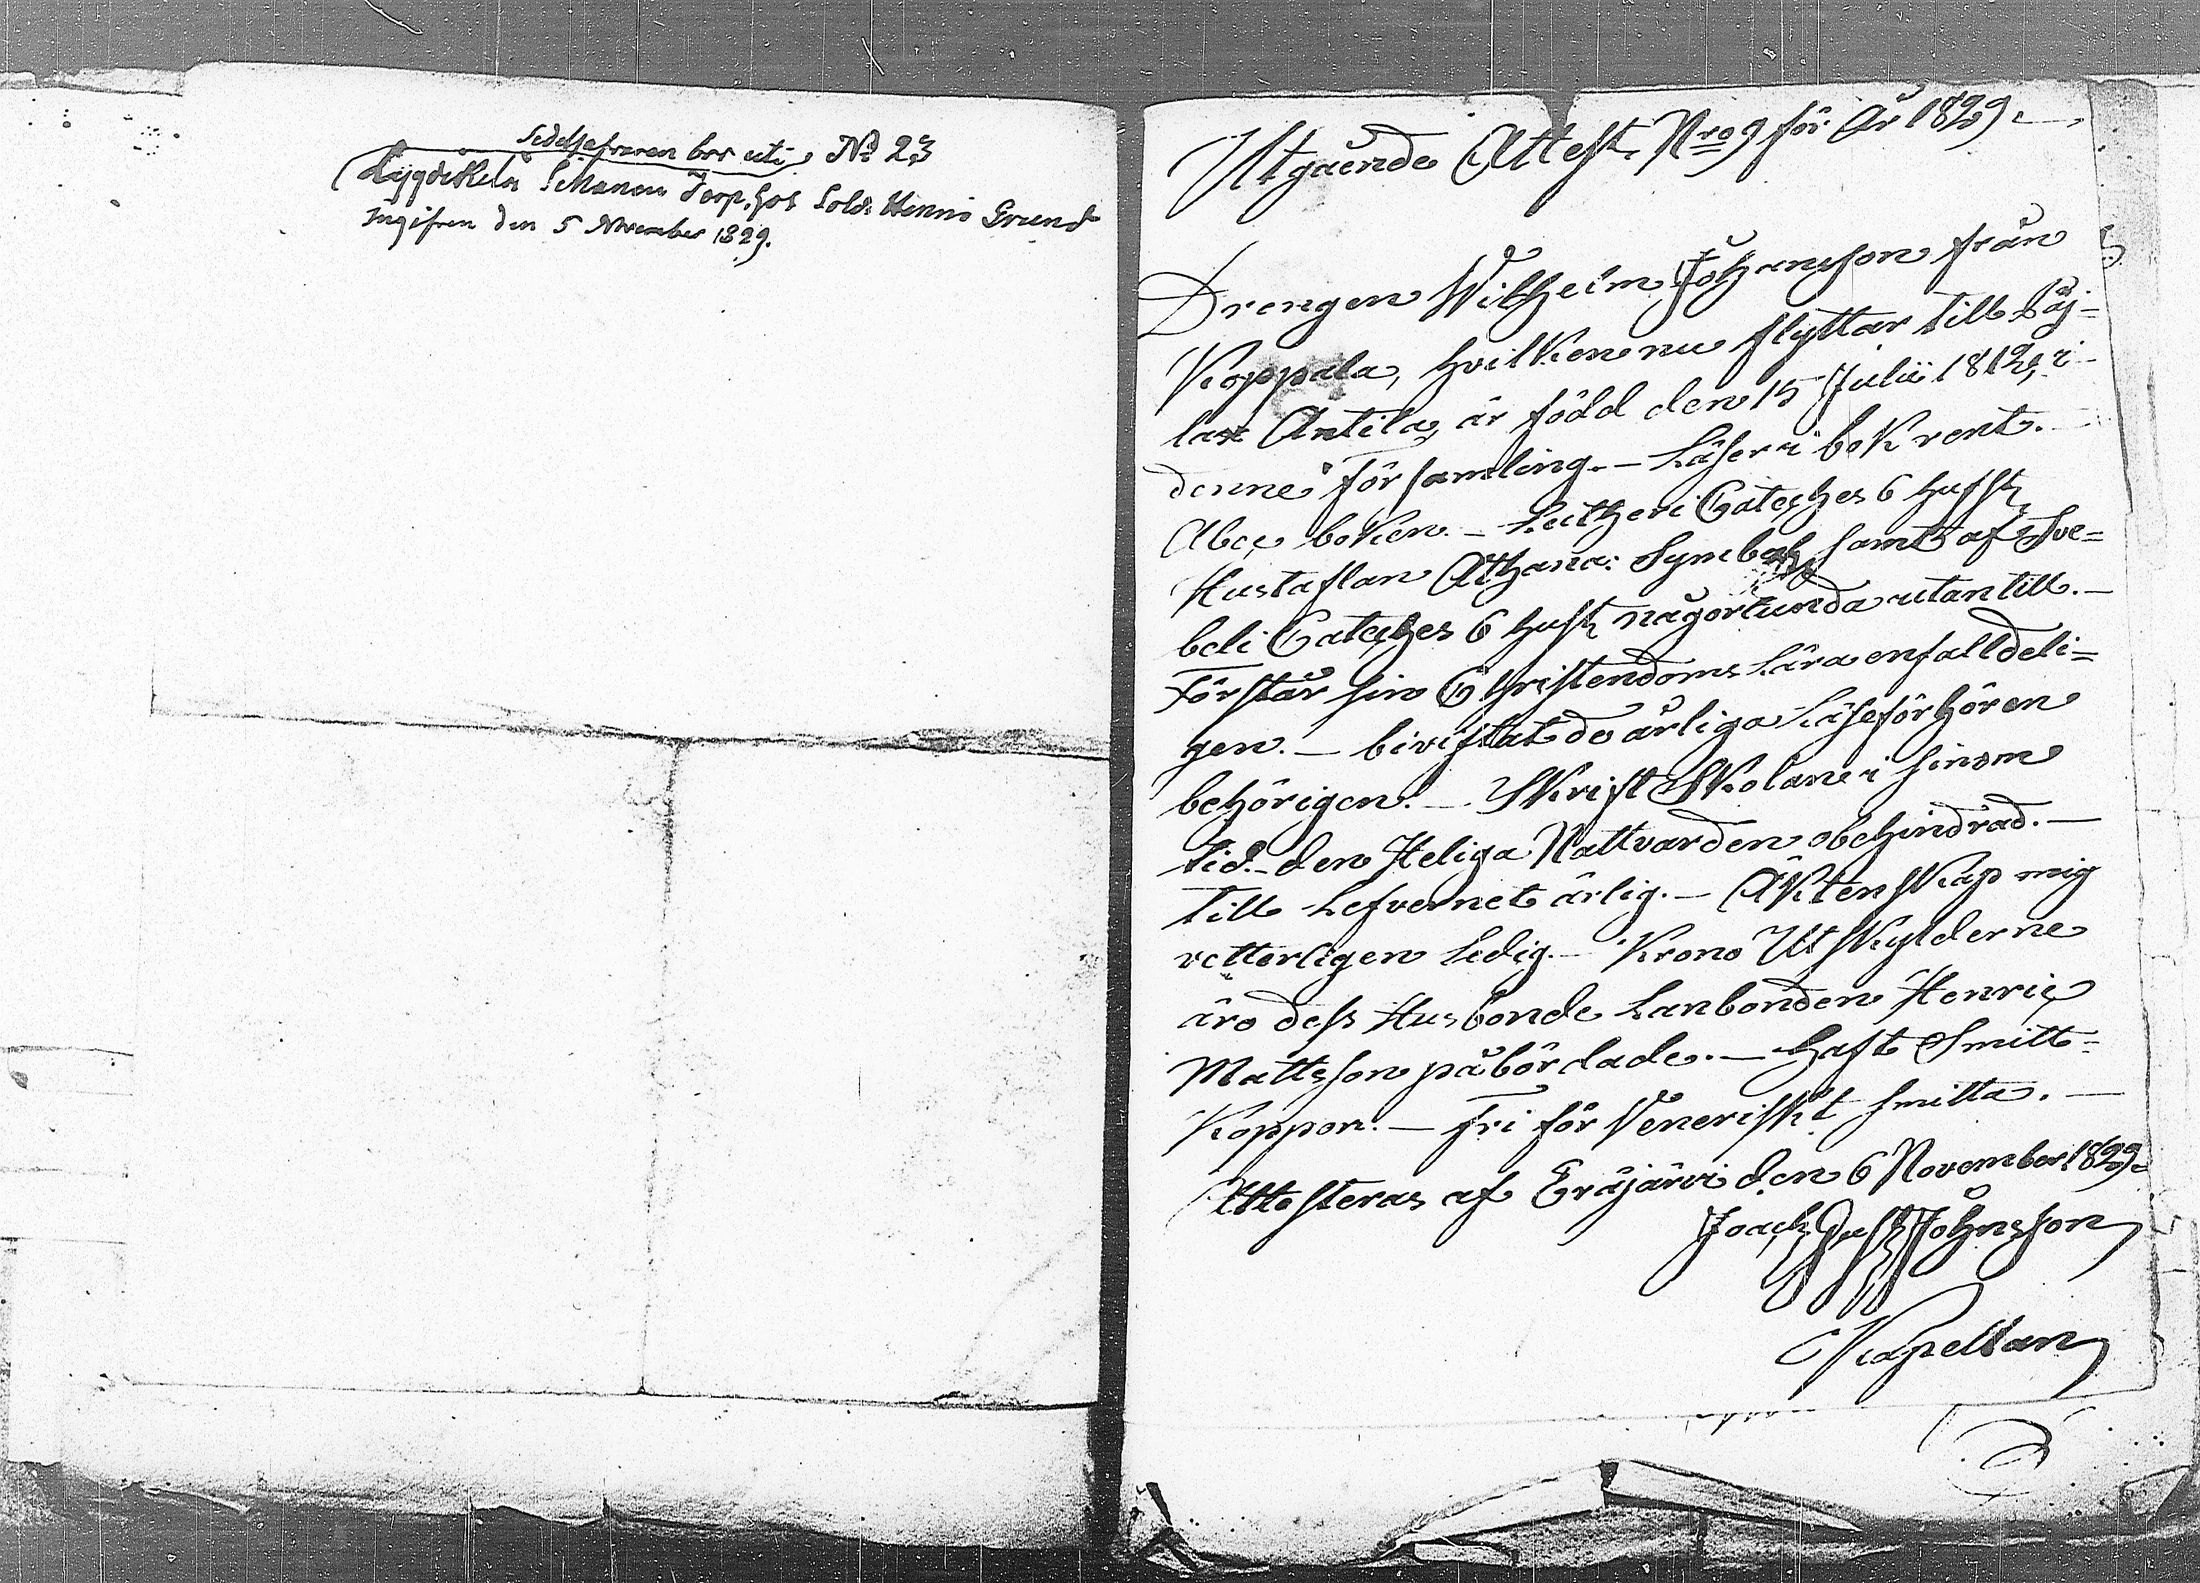 Sedelhafvaren bor uti N:o 23
Sittanen Torp, hos Sold: Henric Grund
Ingifven den 5 November 1829.
Utgående Attest, Nro 9 för År 1829.
Drengen Wilhelm Johansson från
Koppala, hvilken nu flyttar till Säj-
lax Antila, är född den 15 Julii 1812, i
denne församling. – Läser i bok rent.
Abc, boken. – Lutheri Cateches 6 hufst,
Hustaflan Athana: Symbol, samt af Sve=
beli Cateches 6 hufst, någorlunda utantill. –
Förstår sin Christendoms Lära enfalldeli=
gen. – bivistat de årliga Läseförhören
behörigen. – Skrift Skolan i sinom
tid. – den Heliga Nattvarden obehindrad. –
Till Lefvernet ärlig. – Äktenskap mig
vetterligen Ledig. – Krono Utskylderne
äro dess Husbonde Lanbonden Henric
Mattsson påbördade. – haft Smitt=
Koppor. – Fri för Veneriskt smitta. –
Attesteras af Eräjärvi den 6 November 1829.
Joach: Gust: Johnsson
Kapellan